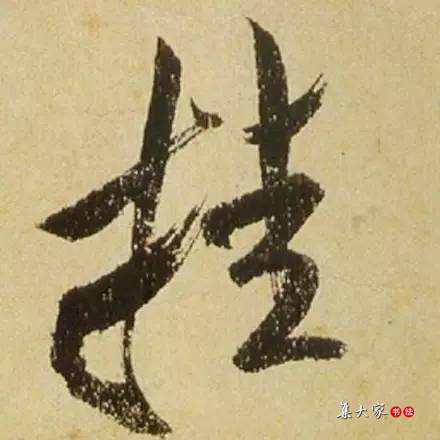 挂
集大家书法